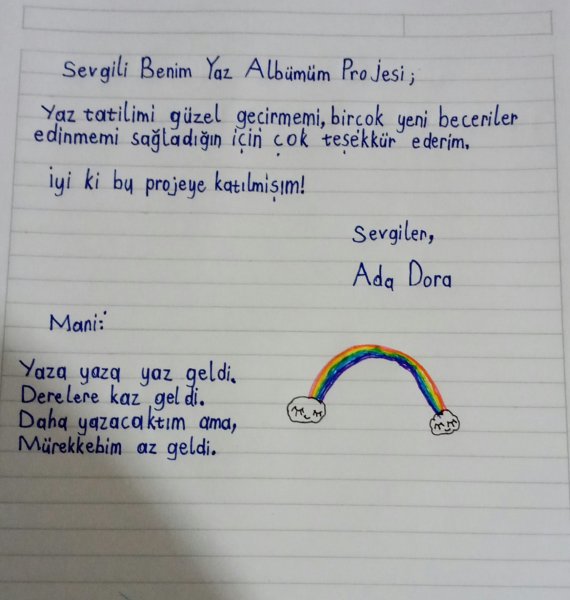 Sevgili Benim Yaz Albümüm Projesi;
Yaz tatilimi güzel geçirmemi, birçok yeni beceriler
edinmemi sağladığın için çok teşekkür ederim.
İyi ki bu projeye katılmışım!
Sevgiler,
Ada Dora
Mani:
Yaza yaza yaz geldi.
Derelere kaz geldi.
Daha yazacaktım ama,
Mürekkebim az geldi.